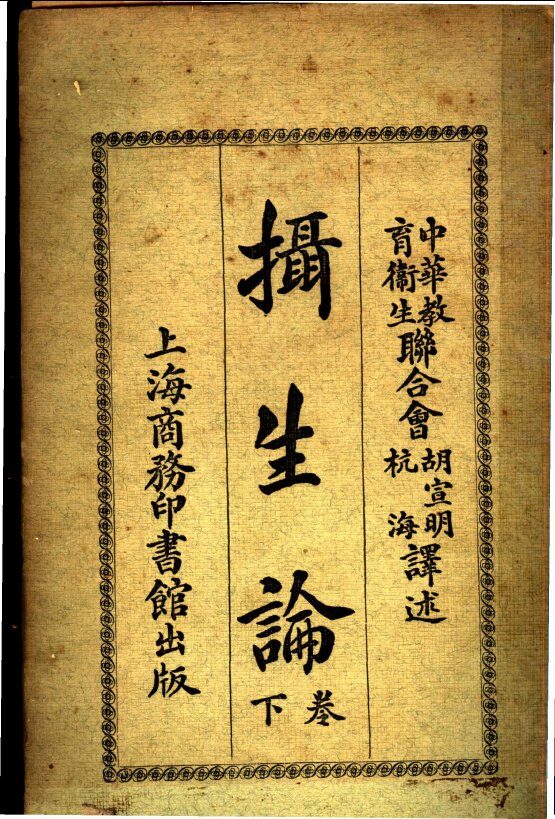 中華教育衞生聯合會 胡宣明 杭海 譯述
攝生論
卷下
上海商務印書館出版